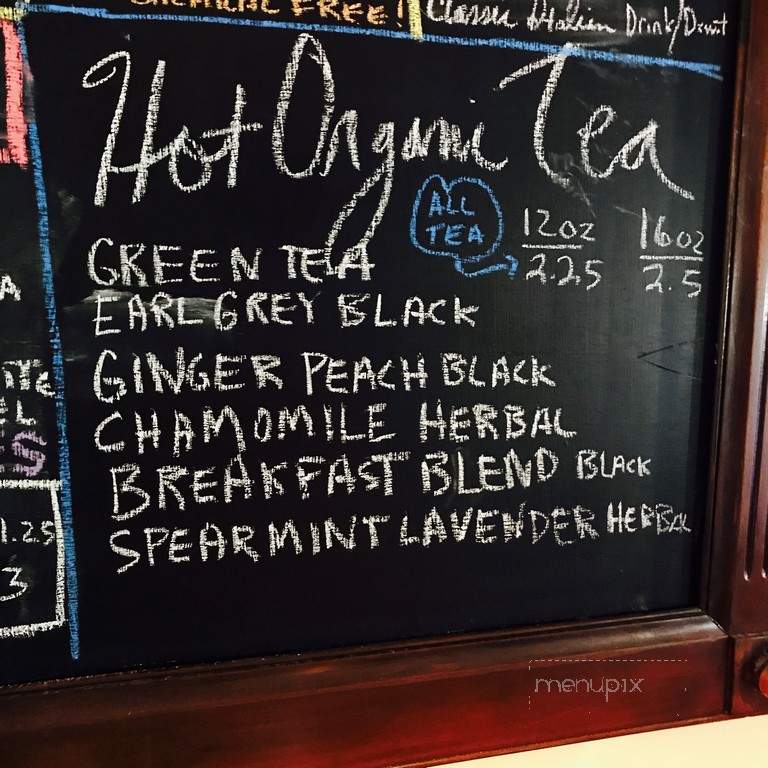 FREE!
Classic Italian Drink/Donut
Hot Organic Tea
ALL
TEA
12oz 16oz
2.25 2.5
GREEN TEA
EARL GREY BLACK
GINGER PEACH BLACK
CHAMOMILE HERBAL
BREAKFAST BLEND BLACK
SPEARMINT LAVENDER HERBAL
A
EL
1.25
3
menupix